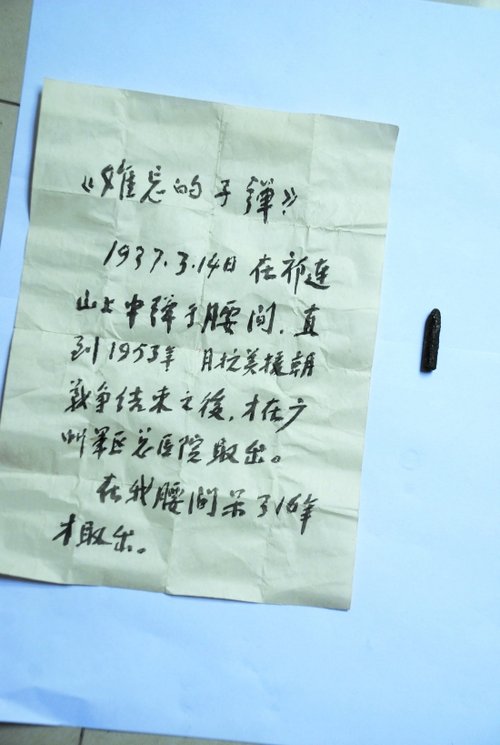 《难忘的子彈》
1937.3.14日在祁连
山上中弹于腰间，直
到1953年 月抗美援朝
戰争结束之後，才在广
州军区总医院取出。
在我腰间呆了16年
才取出。